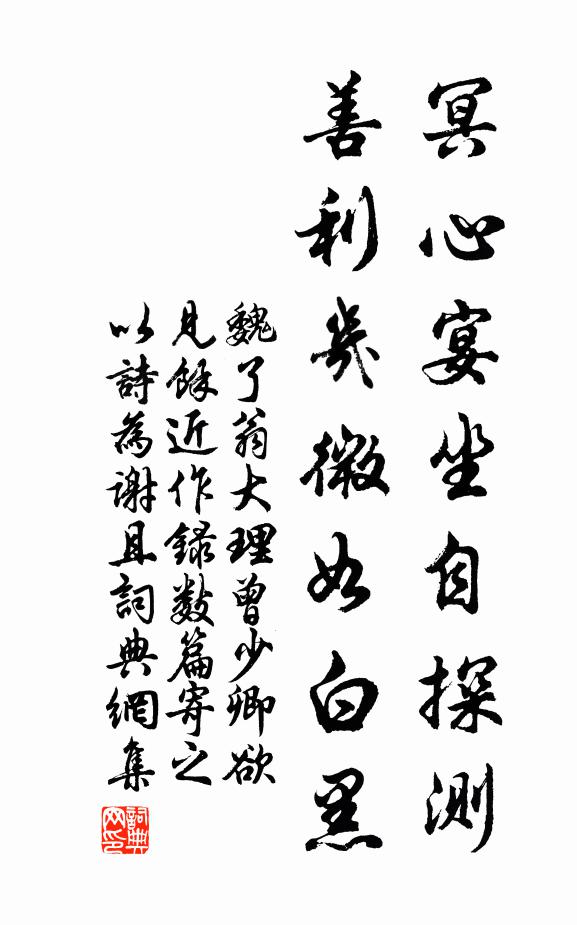 冥心宴坐自探測
善利幾微如白黑
魏了翁大理曾少卿欲
見餘近作録數篇寄之
以詩為謝且詞典網集
詞典网印